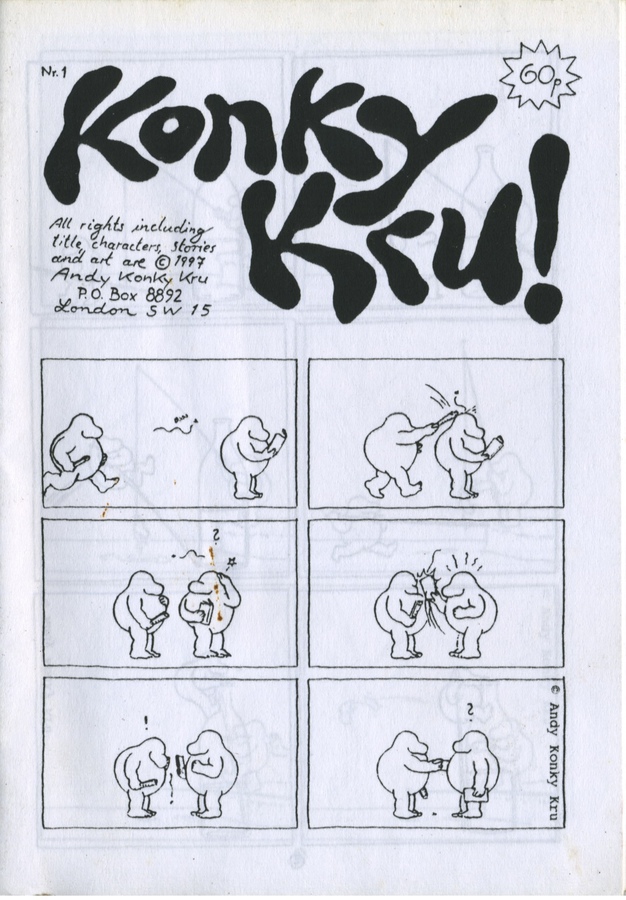 Nr. 1
Konky
Kru!
60p
All rights including
title, characters, stories
and art are © 1997
Andy Konky Kru
P.O. Box 8892
London SW 15
?
!
?
© Andy Konky Kru